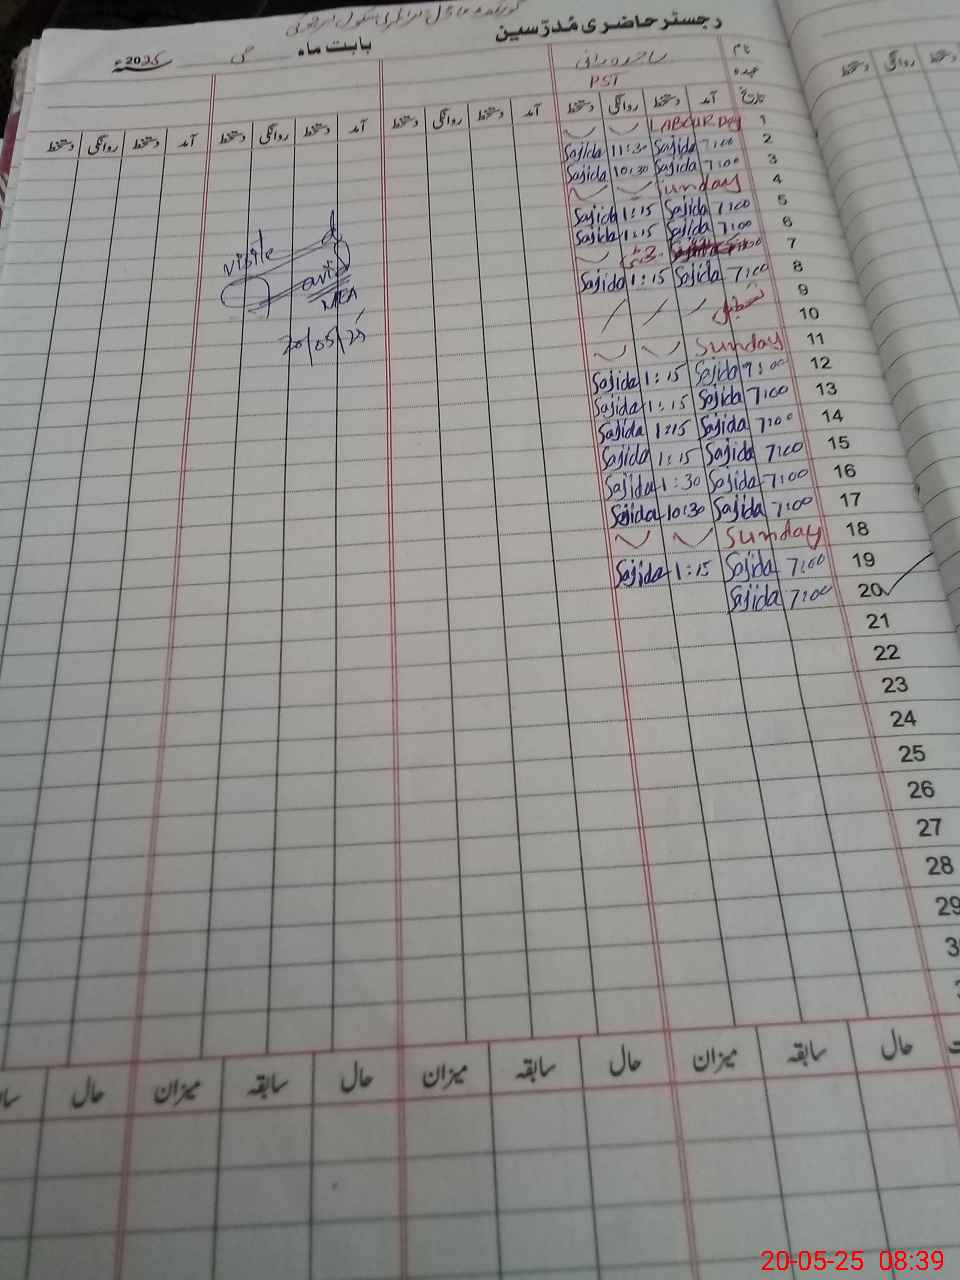 رجسٹر حاضری مُدرّسین
بابت ماہ مئی 2025ء
نام
عہدہ PST
تاریخ آمد دستخط روانگی دستخط آمد دستخط روانگی دستخط آمد دستخط روانگی دستخط آمد دستخط روانگی دستخط
1 LABOUR Day
2 7:00 Sajida 11:30 Sajida
3 7:00 Sajida 10:30 Sajida
4 Sunday
5 7:00 Sajida 1:15 Sajida
6 7:00 Sajida 1:15 Sajida
7
8 7:00 Sajida 1:15 Sajida
9 تعطیل
10
11 Sunday
12 7:00 Sajida 1:15 Sajida
13 7:00 Sajida 1:15 Sajida
14 7:00 Sajida 1:15 Sajida
15 7:00 Sajida 1:15 Sajida
16 7:00 Sajida 1:30 Sajida
17 7:00 Sajida 10:30 Sajida
18 Sunday
19 7:00 Sajida 1:15 Sajida
20 7:00 Sajida
21
22
23
24
25
26
27
28
29
MEA
20/05/25
حال سابقہ میزان حال سابقہ میزان حال سابقہ میزان حال
20-05-25 08:39